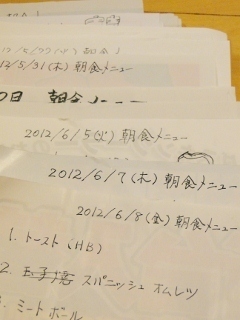 2/5/31(木) 朝食メニュー
日 朝食メニュー
2012/6/5(火) 朝食メニュー
2012/6/7(木) 朝食メニュー
2012/6/8(金) 朝食メニュー
1. トースト (HB)
2. スパニッシュ オムレツ
3. ミートボール